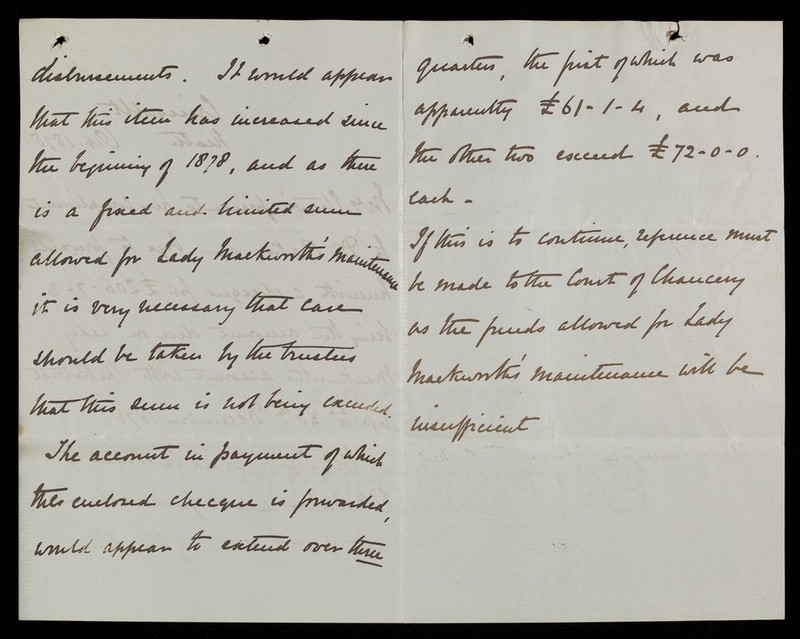 disbursements. It would appear
that this item has increased since
the beginning of 1878, and as there
is a fixed and limited sum
allowed for Lady Mackworth's maintenance
it is very necessary that care
should be taken by the trustees
that this sum is not being exceeded.
The account in payment of which
the enclosed checque is forwarded,
would appear to extend over three
quarters, the first of which was
apparently £61-1-4, and
the other two exceed £72-0-0.
each -
If this is to continue, reference must
be made to the Court of Chancery
as the funds allowed for Lady
Mackworth's maintenance will be
insufficient